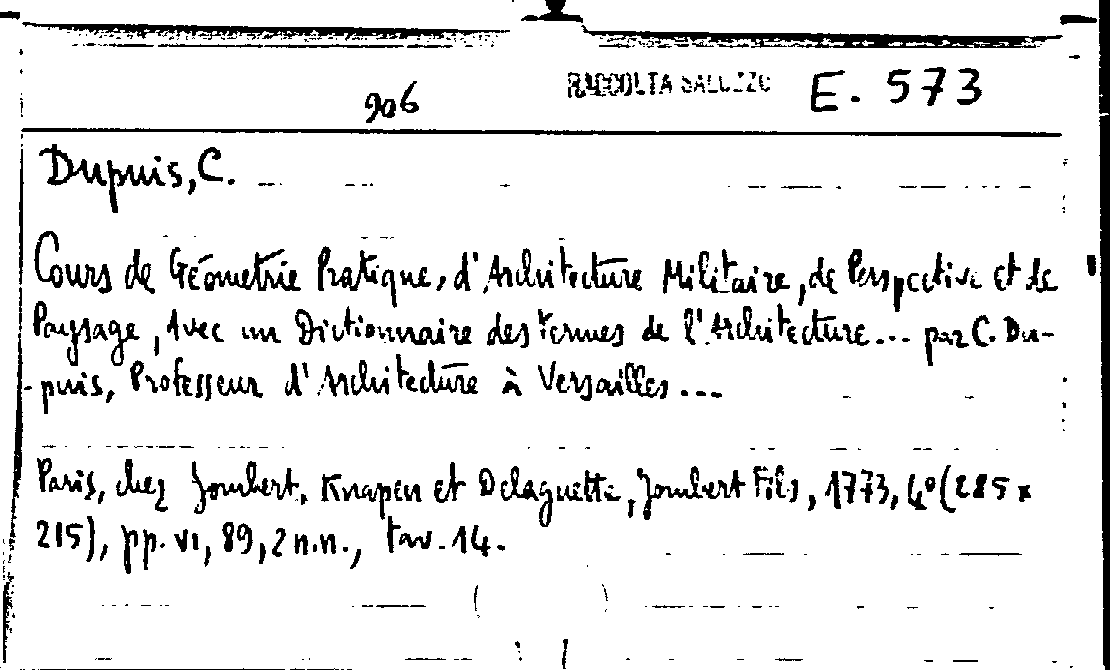 906 RACCOLTA SALUZZO E. 573
Dupuis, C.
Cours de Géometrie Pratique, d'Architecture Militaire, de Perspective et de
Paysage, Avec un Dictionnaire des Termes de l'Architecture... par C. Du-
-puis, Professeur d'Architecture à Versailles...
Paris, chez Jombert, Knapen et Delaguette, Jombert Fils, 1773, 4° (285 x
215), pp. VI, 89, 2 n.n., tav. 14.